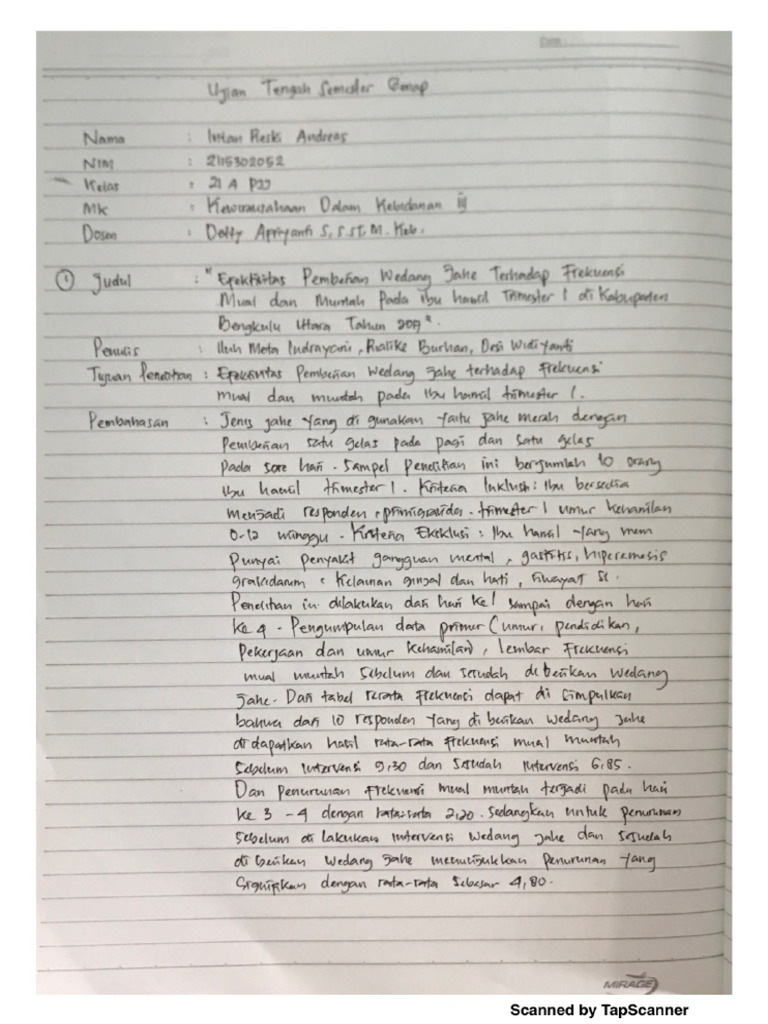 Date :
Ujian Tengah Semester Genap
Nama : Intan Reski Andreas
NIM : 2115302052
Kelas : 21 A PJJ
Mk : Kewirausahaan Dalam Kebidanan
Dosen : Detty Apriyanti S, S.ST. M. Keb.
① Judul : " Efektifitas Pemberian Wedang Jahe Terhadap Frekuensi
Mual dan Muntah Pada ibu hamil Trimester 1 di Kabupaten
Bengkulu Utara Tahun 2017 ".
Penulis : Iluh Meta Indrayani, Rialike Burhan, Desi Widiyanti
Tujuan Penelitian : Efektivitas Pemberian Wedang Jahe terhadap Frekuensi
mual dan muntah pada Ibu hamil trimester 1.
Pembahasan : Jenis jahe yang di gunakan yaitu jahe merah dengan
Pemberian satu gelas pada pagi dan satu gelas
pada sore hari. Sampel Penelitian ini berjumlah 10 orang
Ibu hamil trimester 1. Kriteria Inklusi : Ibu bersedia
menjadi responden, primigravida, trimester 1 umur kehamilan
0-12 minggu. Kriteria Eksklusi : Ibu hamil yang mem
Punyai penyakit gangguan mental, gastitis, hiperemesis
gravidarum, Kelainan ginjal dan hati, riwayat SC.
Penelitian ini dilakukan dari hari ke 1 sampai dengan hari
ke 4. Pengumpulan data primer (umur, pendidikan,
Pekerjaan dan umur kehamilan), lembar Frekuensi
mual muntah Sebelum dan sesudah di berikan wedang
Jahe. Dari tabel rerata Frekuensi dapat di simpulkan
bahwa dari 10 responden yang di berikan wedang jahe
di dapatkan hasil rata-rata frekuensi mual muntah
Sebelum Intervensi 9,30 dan Sesudah Intervensi 6,85.
Dan Penurunan Frekuensi mual muntah terjadi pada hari
ke 3 - 4 dengan rata-rata 2,20. Sedangkan untuk penurunan
sebelum di lakukan Intervensi Wedang jahe dan sesudah
di berikan Wedang Jahe menunjukkan penurunan yang
Signifikan dengan rata-rata sebesar 4,80.
MIRAGE
Scanned by TapScanner